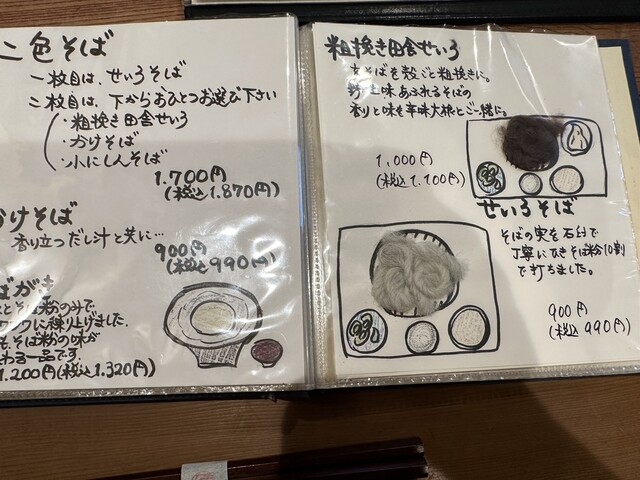 二色そば
一枚目は、せいろそば
二枚目は、下からおひとつお選び下さい
・粗挽き田舎せいろ
・かけそば
・小にしんそば
1.700円
(税込1.870円)
かけそば
香り立つだし汁と共に…
900円
(税込990円)
ばがき
とそば粉のみで
に練り上げました.
そば粉の味が
わる一品です.
1.200円(税込1.320円)
粗挽き田舎せいろ
玄そばを殻ごと粗挽きに。
野趣味あふれるそばの
香りと味を辛味大根とご一緒に。
1,000円
(税込1.100円)
せいろそば
そばの実を石臼で
丁寧にひきそば粉10割
で打ちました。
900円
(税込990円)